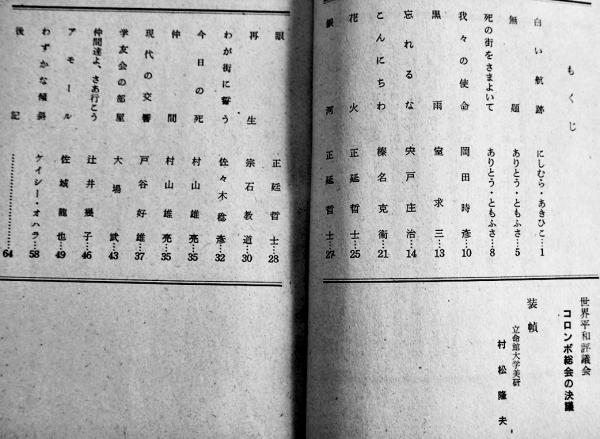 もくじ
白い航跡 にしむら・あきひこ…1
無題 ありとう・ともふさ…5
死の街をさまよいて ありとう・ともふさ…8
我々の使命 岡田時彦…10
黒雨 室求三…13
忘れるな 宍戸庄治…14
こんにちわ 榛名克衛…21
花火 正延哲士…25
銀河 正延哲士…27
世界平和評議会
コロンボ総会の決議
装幀
立命館大学美研
村松隆夫
眼 正延哲士…28
再生 宗石教道…30
わが街に誓う 佐々木稔彦…32
今日の死 村山雄亮…35
仲間 村山雄亮…35
現代の交響 戸谷好雄…37
学友会の部屋 大場武…43
仲間達よ、さあ行こう 辻井幾子…46
アモール 佐城龍也…49
わずかな傾斜 ケイシー・オハラ…58
後記……………64